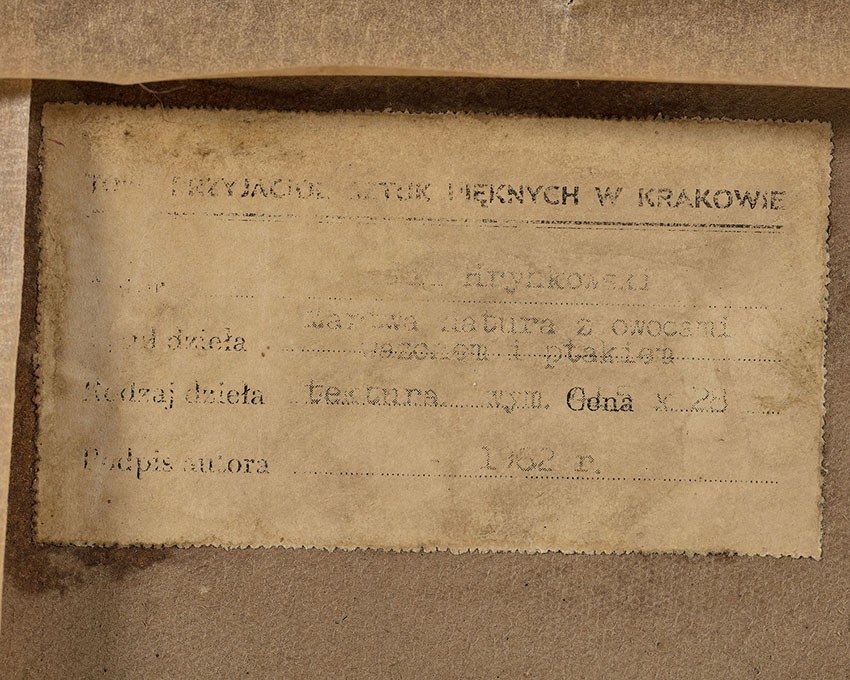 TOW. PRZYJACIÓŁ SZTUK PIĘKNYCH W KRAKOWIE
Hrynkowski
Martwa natura z owocami
dzieła
wazonem i ptakiem
Rodzaj dzieła tektura wym. Cena x 28
Podpis autora 1962 r.